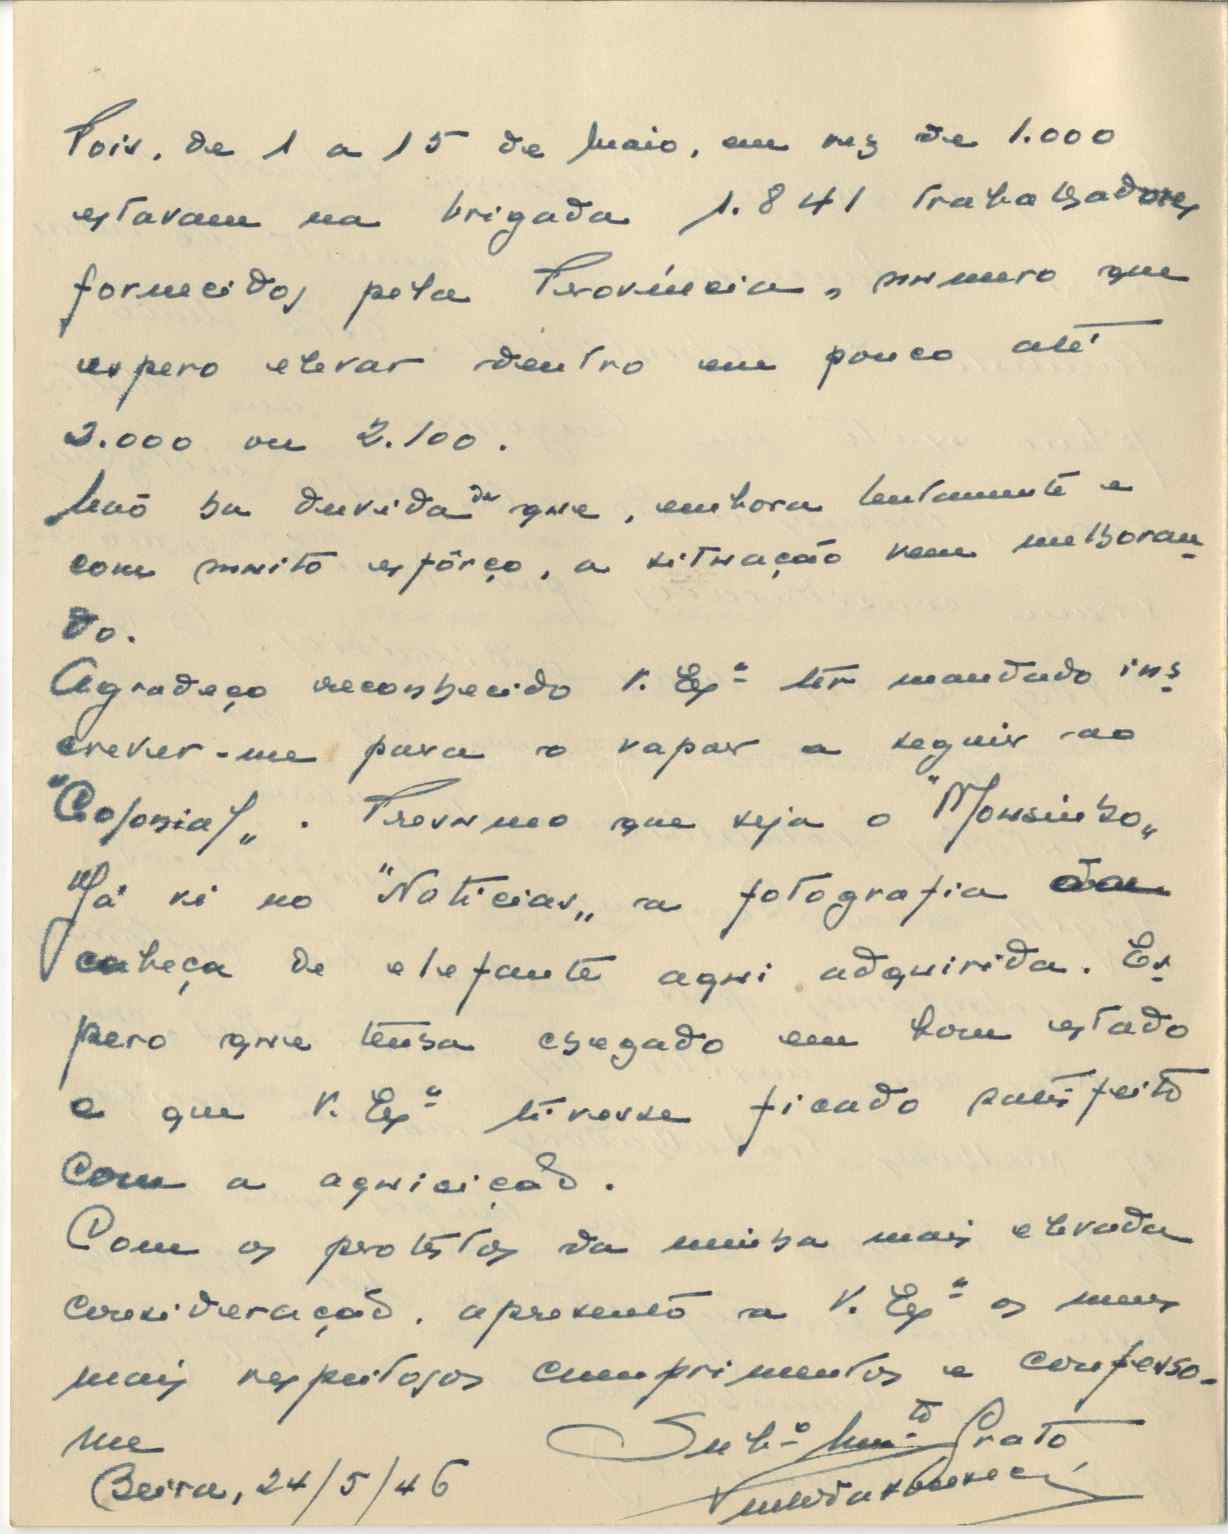 Pois, de 1 a 15 de Maio, em vez de 1.000
estavam na brigada 1.841 trabalhadores
fornecidos pela Província, numero que
espero elevar dentro em pouco até
2.000 ou 2.100.
Não ha duvida de que, embora lentamente e
com muito esfôrço, a situação vem melhoran-
do.
Agradeço reconhecido V. Exª ter mandado ins-
crever-me para o vapor a seguir ao
"Colonial". Presumo que seja o "Mousinho"
Já vi no "Noticias" a fotografia da
cabeça de elefante aqui adquirida. Es-
pero que tenha chegado em bom estado
e que V. Exª tivesse ficado satisfeito
com a aquisição.
Com os protestos da minha mais elevada
consideração, apresento a V. Exª os meus
mais respeitosos cumprimentos e confesso-
me
Subº Muitº Grato
Beira, 24/5/46